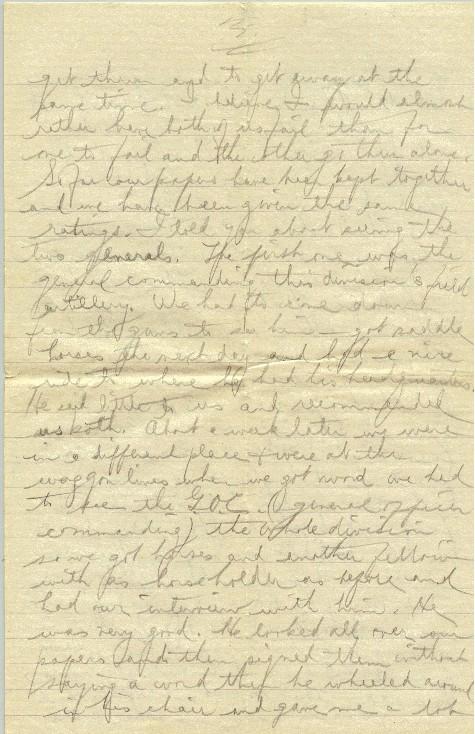 3/
get them and to get away at the
same time. I believe I would almost
rather have both of us fail than for
one to fail and the other go thru alone.
So far our papers have been kept together
and we have been given the same
ratings. I told you about seeing the
two generals. The first one was the
general commanding this division's field
artillery. We had to come down
from the guns to see him — got saddle
horses the next day and had a nice
ride to where he had his headquarters
He said little to us and recommended
us both. About a week later we were
in a different place & were at the
waggon lines when we got word we had
to see the G.O.C. (general officer
commanding) the whole division
so we got horses and another fellow
with as horseholder as before and
had our interview with him. He
was very good. He looked all over our
papers and then signed them without
saying a word then he wheeled around
in his chair and gave me a